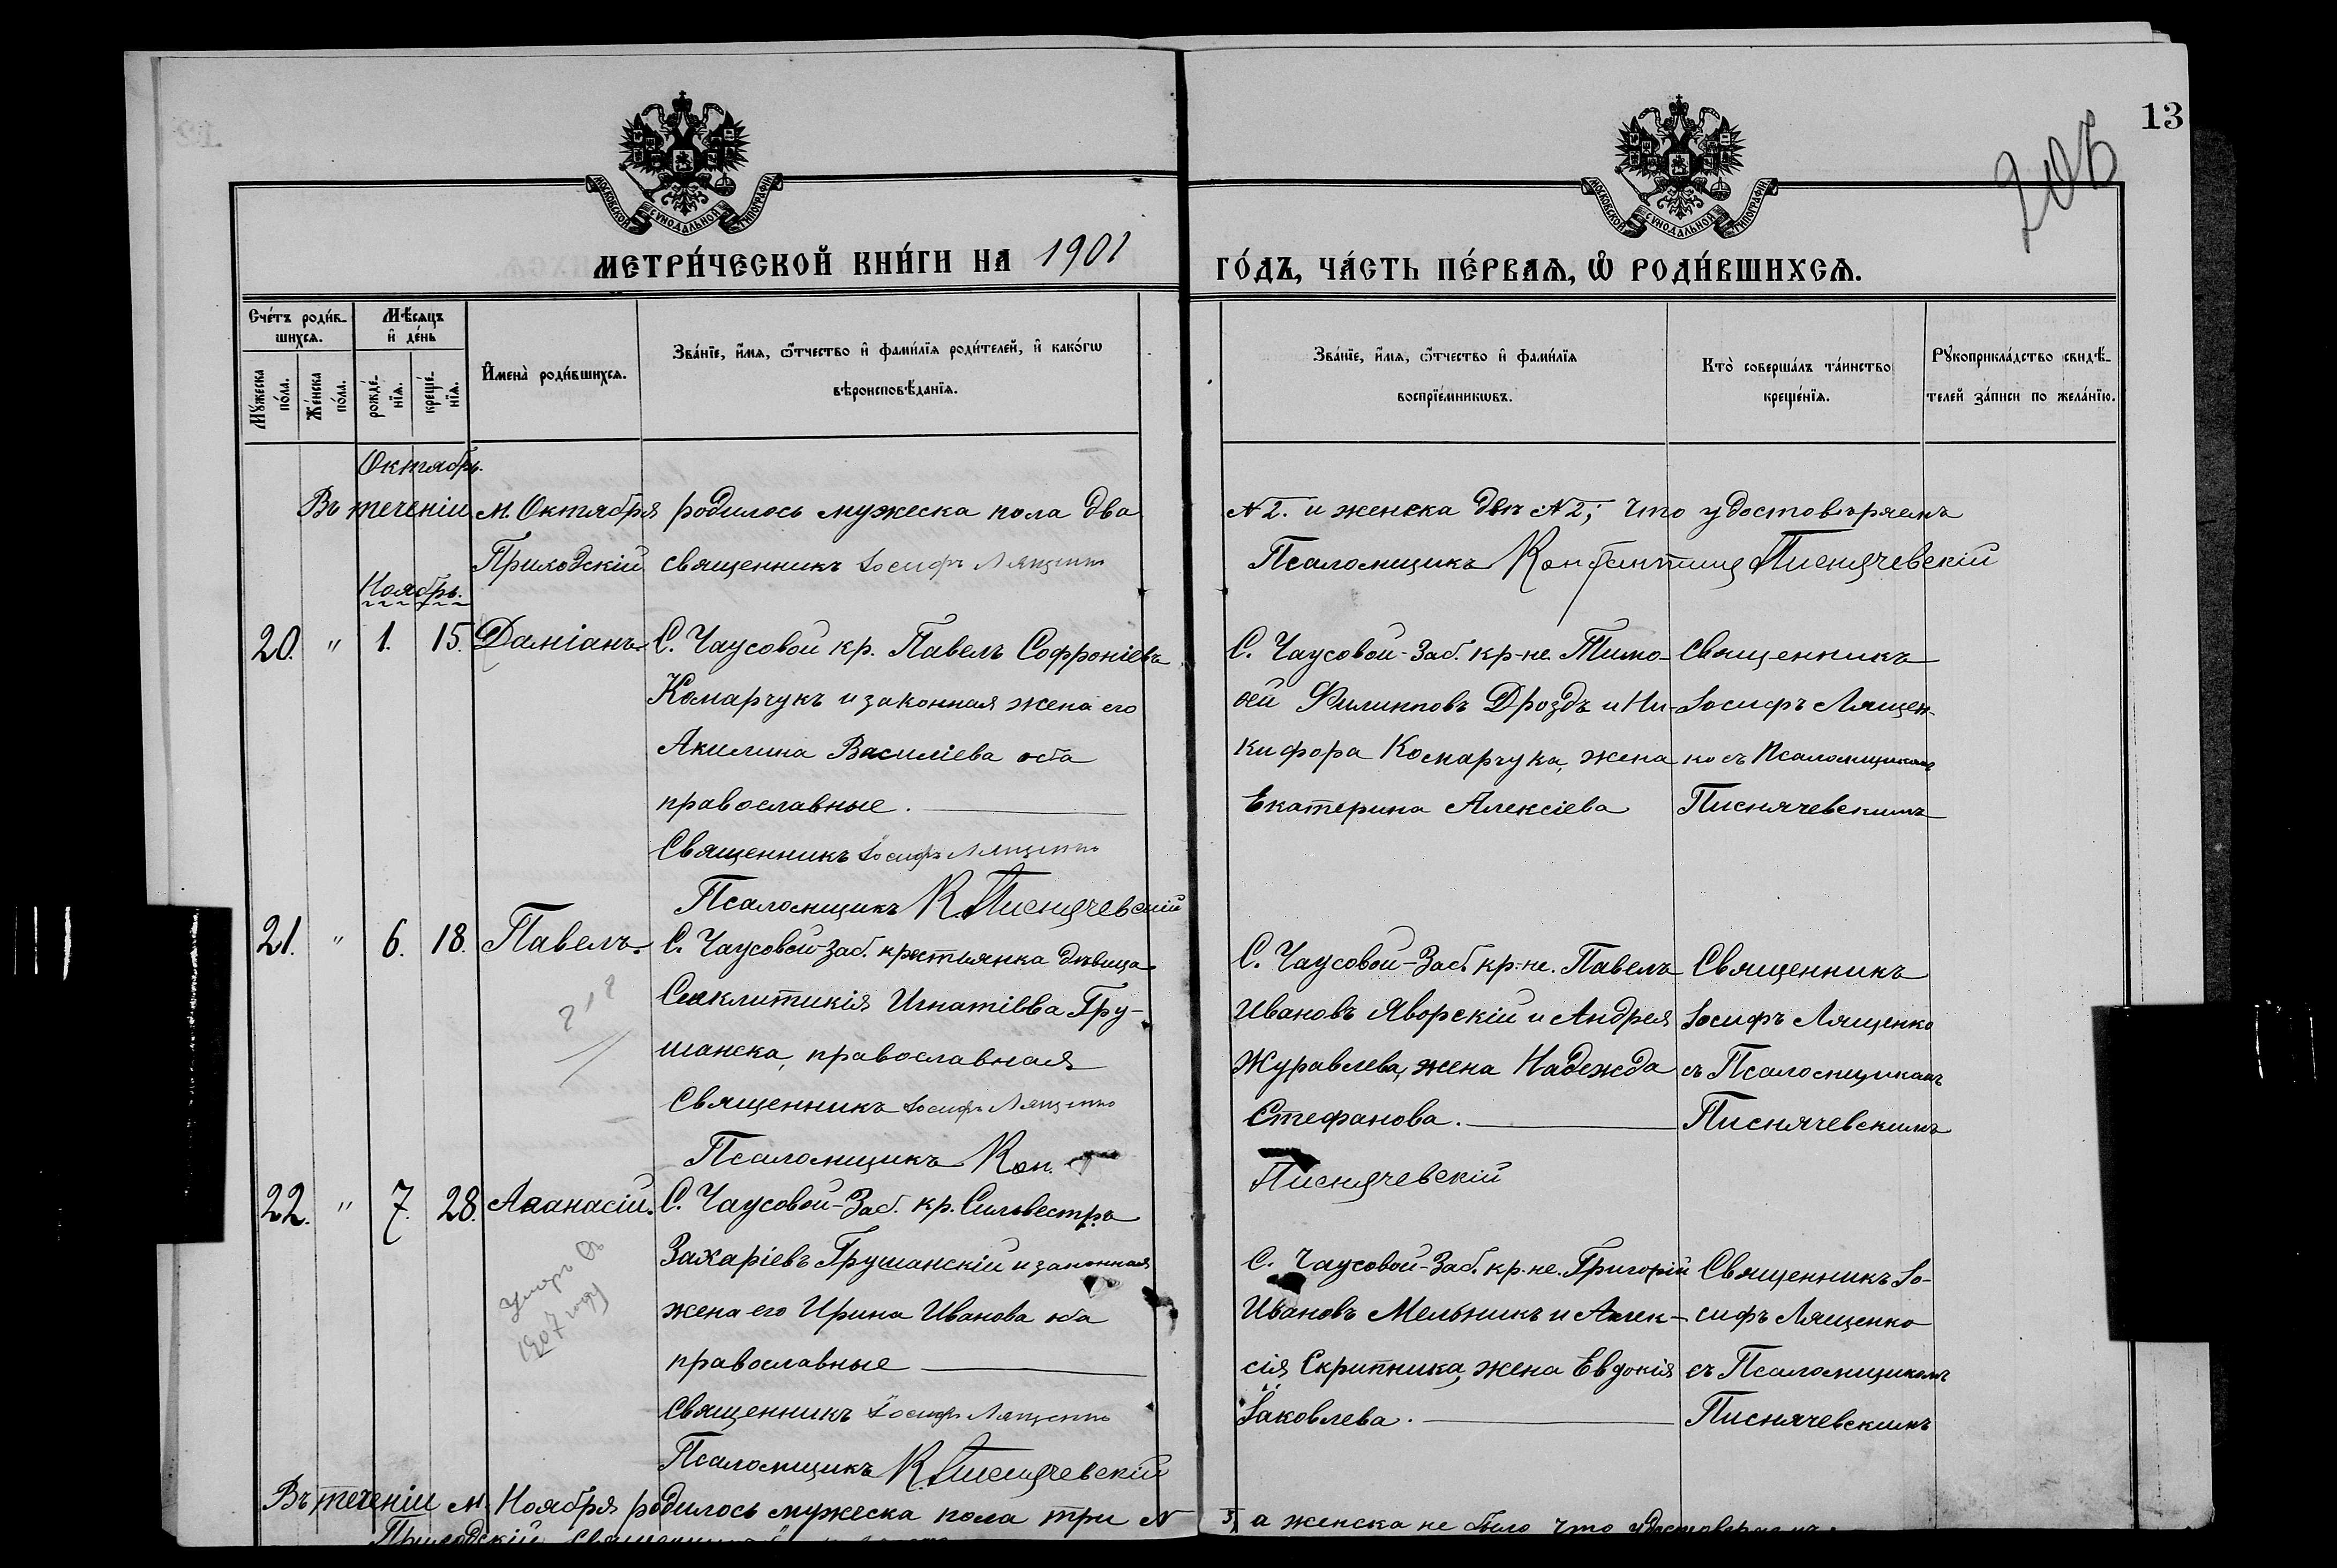 13
206
МОСКОВСКОЙ СУНОДАЛЬНОЙ ТИПОГРАФІИ
МОСКОВСКОЙ СУНОДАЛЬНОЙ ТИПОГРАФІИ
МЕТРИ́ЧЕСКОЙ КНИ́ГИ НА 1901
ГО́ДЪ, ЧА́СТЬ ПЕ́РВАѦ, Ѽ РОДИ́ВШИХСѦ.
Сче́тъ роди́в-
шихсѧ.
Мꙋ́жеска
по́ла.
Же́нска
по́ла.
Мѣ́сѧцъ
и҆ де́нь
рожде́-
нїѧ.
креще́-
нїѧ.
И҆мена̀ роди́вшихсѧ.
Зва́нїе, и҆́мѧ, ѻ҆́тчество и҆ фами́лїѧ роди́телей, и҆ како́гѡ
вѣроисповѣ́данїѧ.
Зва́нїе, и҆́мѧ, ѻ҆́тчество и҆ фами́лїѧ
воспрїе́мникѡвъ.
Кто̀ соверша́лъ та́инство
креще́нїѧ.
Рꙋкоприкла́дство свидѣ́-
телей за́писи по жела́нїю.
Октябрь.
Въ теченіи м. Октября родилось мужеска пола два
№ 2. и женска двѣ № 2; что удостовѣряемъ
Приходскій священникъ Іосифъ Лященко
Псаломщикъ Константинъ Писнячевскій
Ноябрь.
20. " 1. 15. Даміанъ.
С. Чаусовой кр. Павелъ Софроніевъ
Комарчукъ и законная жена его
Акилина Василіева оба
православные.
Священникъ Іосифъ Лященко
Псаломщикъ К. Писнячевскій
С. Чаусовой-Заб. кр-не. Тимо-
ѳей Филипповъ Дроздъ и Ни-
кифора Комарчука, жена
Екатерина Алексіева
Священникъ
Іосифъ Лящен-
ко съ Псаломщикомъ
Писнячевскимъ
21. " 6. 18. Павелъ.
С. Чаусовой-Заб. крестьянка дѣвица
Синклитикія Игнатіева Гру-
шанска, православная
Священникъ Іосифъ Лященко
Псаломщикъ Кон.
С. Чаусовой-Заб. кр-не. Павелъ
Ивановъ Яворскій и Андрея
Журавлева, жена Надежда
Стефанова.
Писнячевскій
Священникъ
Іосифъ Лященко
съ Псаломщикомъ
Писнячевскимъ
22. " 7. 28. Аѳанасій.
умеръ
1907 году
С. Чаусовой-Заб. кр. Сильвестръ
Захаріевъ Грушанскій и законная
жена его Ирина Иванова оба
православные
Священникъ Іосифъ Лященко
Псаломщикъ К. Писнячевскій
С. Чаусовой-Заб. кр-не. Григорій
Ивановъ Мельникъ и Алек-
сія Скрипника, жена Евдокія
Іаковлева.
Священникъ Іо-
сифъ Лященко
съ Псаломщикомъ
Писнячевскимъ
Въ теченіи м. Ноября родилось мужеска пола три №
3, а женска не было что удостовѣряемъ.
Приходскій Священникъ